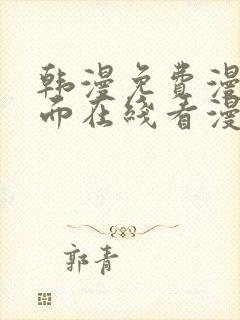 韩漫免费漫
而在线看漫
郭青